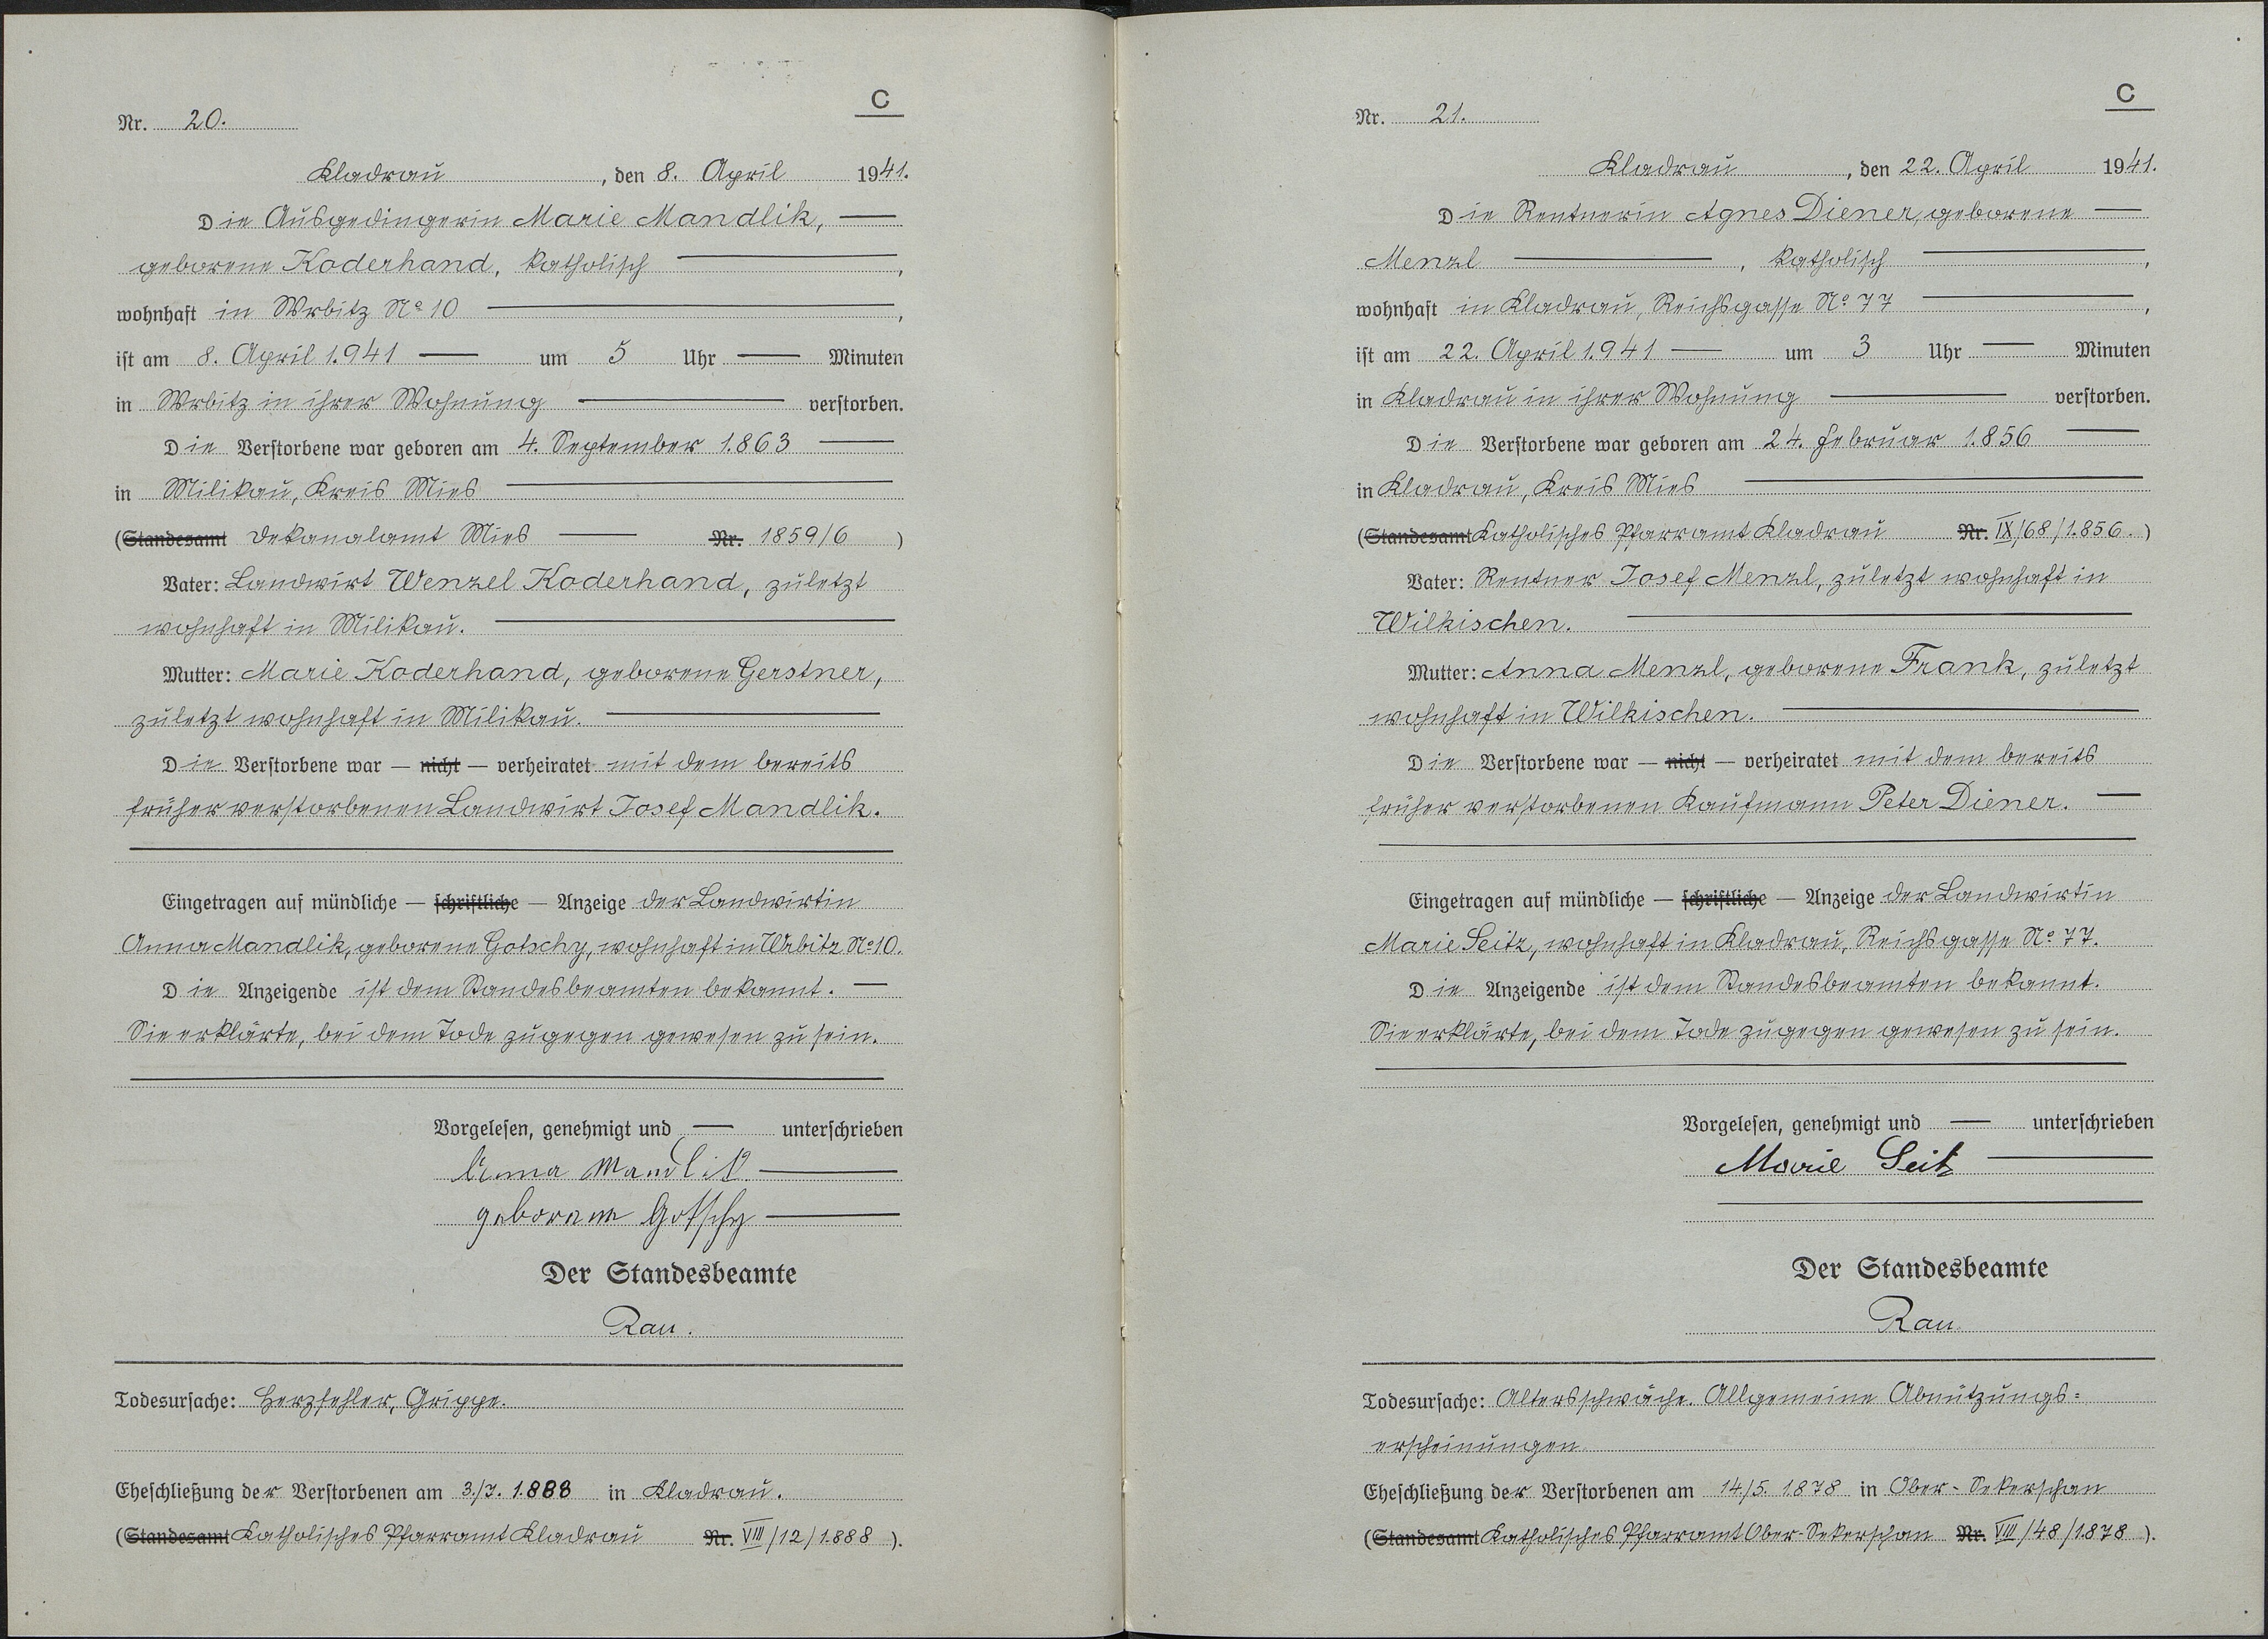 C
Nr. 20.
Kladrau, den 8. April 1941.
Die Ausgedingerin Marie Mandlik, —
geborene Koderhand, katholisch —,
wohnhaft in Wrbitz No 10 —,
ist am 8. April 1.941 — um 5 Uhr — Minuten
in Wrbitz in ihrer Wohnung — verstorben.
Die Verstorbene war geboren am 4. September 1.863 —
in Milikau, Kreis Mies —
(Standesamt Dekanalamt Mies — Nr. 1859/6)
Vater: Landwirt Wenzel Koderhand, zuletzt
wohnhaft in Milikau. —
Mutter: Marie Koderhand, geborene Gerstner,
zuletzt wohnhaft in Milikau. —
Die Verstorbene war — nicht — verheiratet mit dem bereits
früher verstorbenen Landwirt Josef Mandlik.
Eingetragen auf mündliche — schriftliche — Anzeige der Landwirtin
Anna Mandlik, geborene Gotschy, wohnhaft in Wrbitz No 10.
Die Anzeigende ist dem Standesbeamten bekannt. —
Sie erklärte, bei dem Tode zugegen gewesen zu sein.
Vorgelesen, genehmigt und — unterschrieben
Anna Mandlik —
geborene Gotschy —
Der Standesbeamte
Rau.
Todesursache: Herzfehler, Grippe.
Eheschließung der Verstorbenen am 3./7. 1.888 in Kladrau.
(Standesamt Katholisches Pfarramt Kladrau Nr. VIII/12/1.888).
C
Nr. 21.
Kladrau, den 22. April 1941.
Die Rentnerin Agnes Diener, geborene —
Menzl —, katholisch —,
wohnhaft in Kladrau, Reichsgasse No 77 —,
ist am 22. April 1.941 — um 3 Uhr — Minuten
in Kladrau in ihrer Wohnung — verstorben.
Die Verstorbene war geboren am 24. Februar 1.856 —
in Kladrau, Kreis Mies —
(Standesamt Katholisches Pfarramt Kladrau Nr. IX/68/1.856.)
Vater: Rentner Josef Menzl, zuletzt wohnhaft in
Wilkischen. —
Mutter: Anna Menzl, geborene Frank, zuletzt
wohnhaft in Wilkischen. —
Die Verstorbene war — nicht — verheiratet mit dem bereits
früher verstorbenen Kaufmann Peter Diener. —
Eingetragen auf mündliche — schriftliche — Anzeige der Landwirtin
Marie Seitz, wohnhaft in Kladrau, Reichsgasse No 77.
Die Anzeigende ist dem Standesbeamten bekannt.
Sie erklärte, bei dem Tode zugegen gewesen zu sein.
Vorgelesen, genehmigt und — unterschrieben
Marie Seitz —
Der Standesbeamte
Rau.
Todesursache: Altersschwäche. Allgemeine Abnützungs=
erscheinungen.
Eheschließung der Verstorbenen am 14/5. 1.878 in Ober-Sekerschan
(Standesamt Katholisches Pfarramt Ober-Sekerschan Nr. VIII/48/1.878).